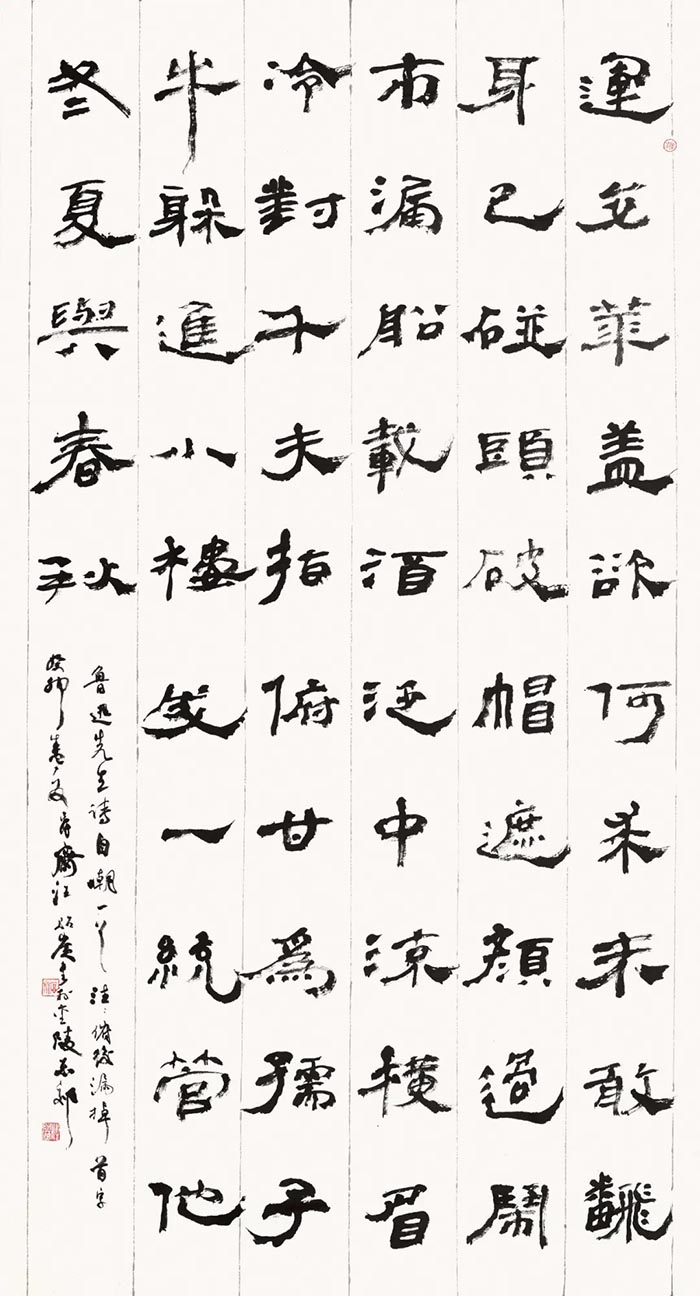 運交華盖欲何求未敢飜
身已碰頭破帽遮顏過鬧
市漏船載酒泛中流橫眉
冷對千夫指俯甘爲孺子
牛躲進小樓成一統管他
冬夏與春秋
魯迅先生詩自嘲一首 注:俯後漏掉首字
癸卯 於金陵